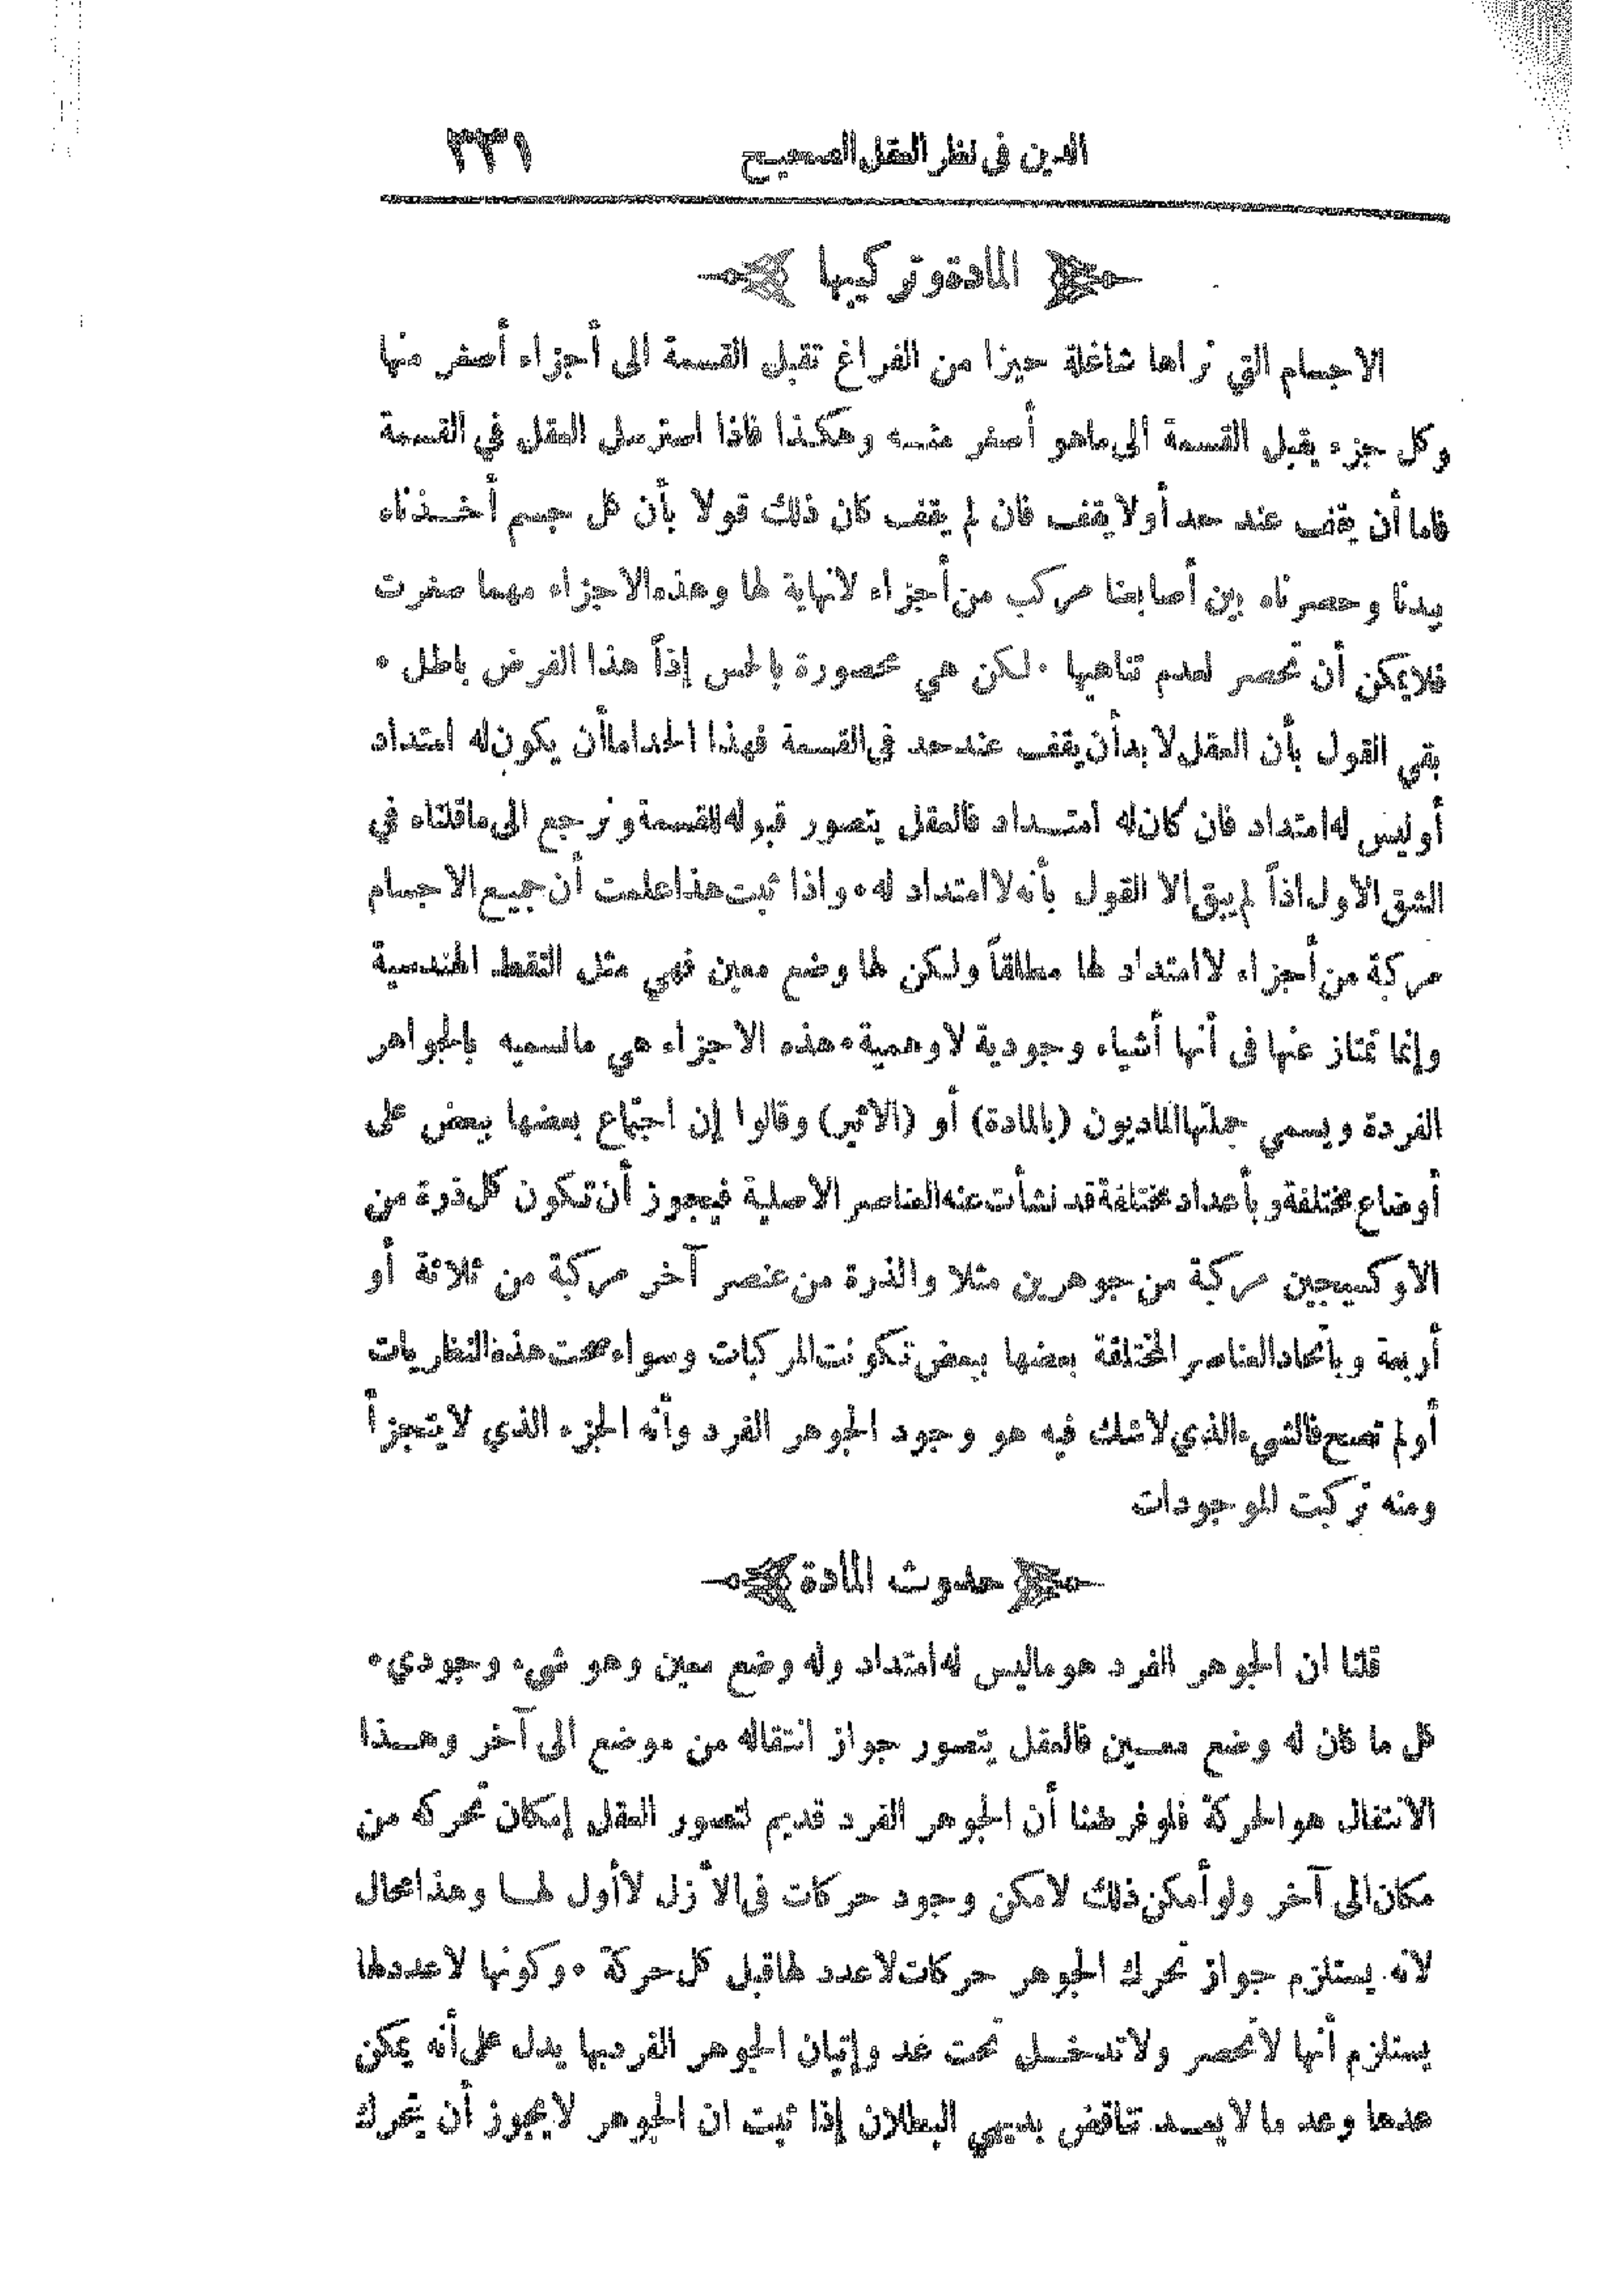 الدين في نظر العقل الصحيح ٣٣١
المادة وتركيبها
الاجسام التي نراها شاغلة حيزا من الفراغ تقبل القسمة الى أجزاء أصغر منها
وكل جزء يقبل القسمة الى ماهو أصغر منه وهكذا فاذا استرسل العقل في القسمة
فاما أن يقف عند حد أولا يقف فان لم يقف كان ذلك قولا بأن كل جسم أخذناه
بيدنا وحصرناه بين أصابعنا مركب من أجزاء لانهاية لها وهذه الاجزاء مهما صغرت
فلا يمكن أن تحصر لعدم تناهيها ٠ لكن هي محصورة بالحس إذاً هذا الفرض باطل ٠
بقي القول بأن العقل لا بد أن يقف عند حد في القسمة فهذا الحد اما أن يكون له امتداد
أو ليس له امتداد فان كان له امتداد فالعقل يتصور قبوله للقسمة ونرجع الى ماقلناه في
الشق الاول اذاً لم يبق الا القول بأنه لا امتداد له ٠ واذا ثبت هذا علمت أن جميع الاجسام
مركبة من أجزاء لا امتداد لها مطلقاً ولكن لها وضع معين فهي مثل النقط الهندسية
وإنما تمتاز عنها في أنها أشياء وجودية لا وهمية ٠ هذه الاجزاء هي مانسميه بالجواهر
الفردة ويسمي جملتها الماديون (بالمادة) أو (الاثير) وقالوا إن اجتماع بعضها ببعض على
أوضاع مختلفة وبأعداد مختلفة قد نشأت عنه العناصر الاصلية فيجوز أن تكون كل ذرة من
الاوكسيجين مركبة من جوهرين مثلا والذرة من عنصر آخر مركبة من ثلاثة أو
أربعة وباتحاد العناصر المختلفة بعضها ببعض تكونت المركبات وسواء صحت هذه النظريات
أو لم تصح فالشيء الذي لاشك فيه هو وجود الجوهر الفرد وأنه الجزء الذي لا يتجزأ
ومنه تركبت الموجودات
حدوث المادة
قلنا ان الجوهر الفرد هو ماليس له امتداد وله وضع معين وهو شيء وجودي ٠
كل ما كان له وضع معين فالعقل يتصور جواز انتقاله من موضع الى آخر وهذا
الانتقال هو الحركة فلو فرضنا أن الجوهر الفرد قديم لتصور العقل إمكان تحركه من
مكان الى آخر ولو أمكن ذلك لامكن وجود حركات في الأزل لا أول لها وهذا محال
لانه يستلزم جواز تحرك الجوهر حركات لا عدد لها قبل كل حركة ٠ وكونها لاعدد لها
يستلزم أنها لا تحصر ولا تدخل تحت عد وإتيان الجوهر الفرد بها يدل على أنه يمكن
عدها وعد ما لا يعد تناقض بديهي البطلان إذا ثبت ان الجوهر لا يجوز أن يتحرك